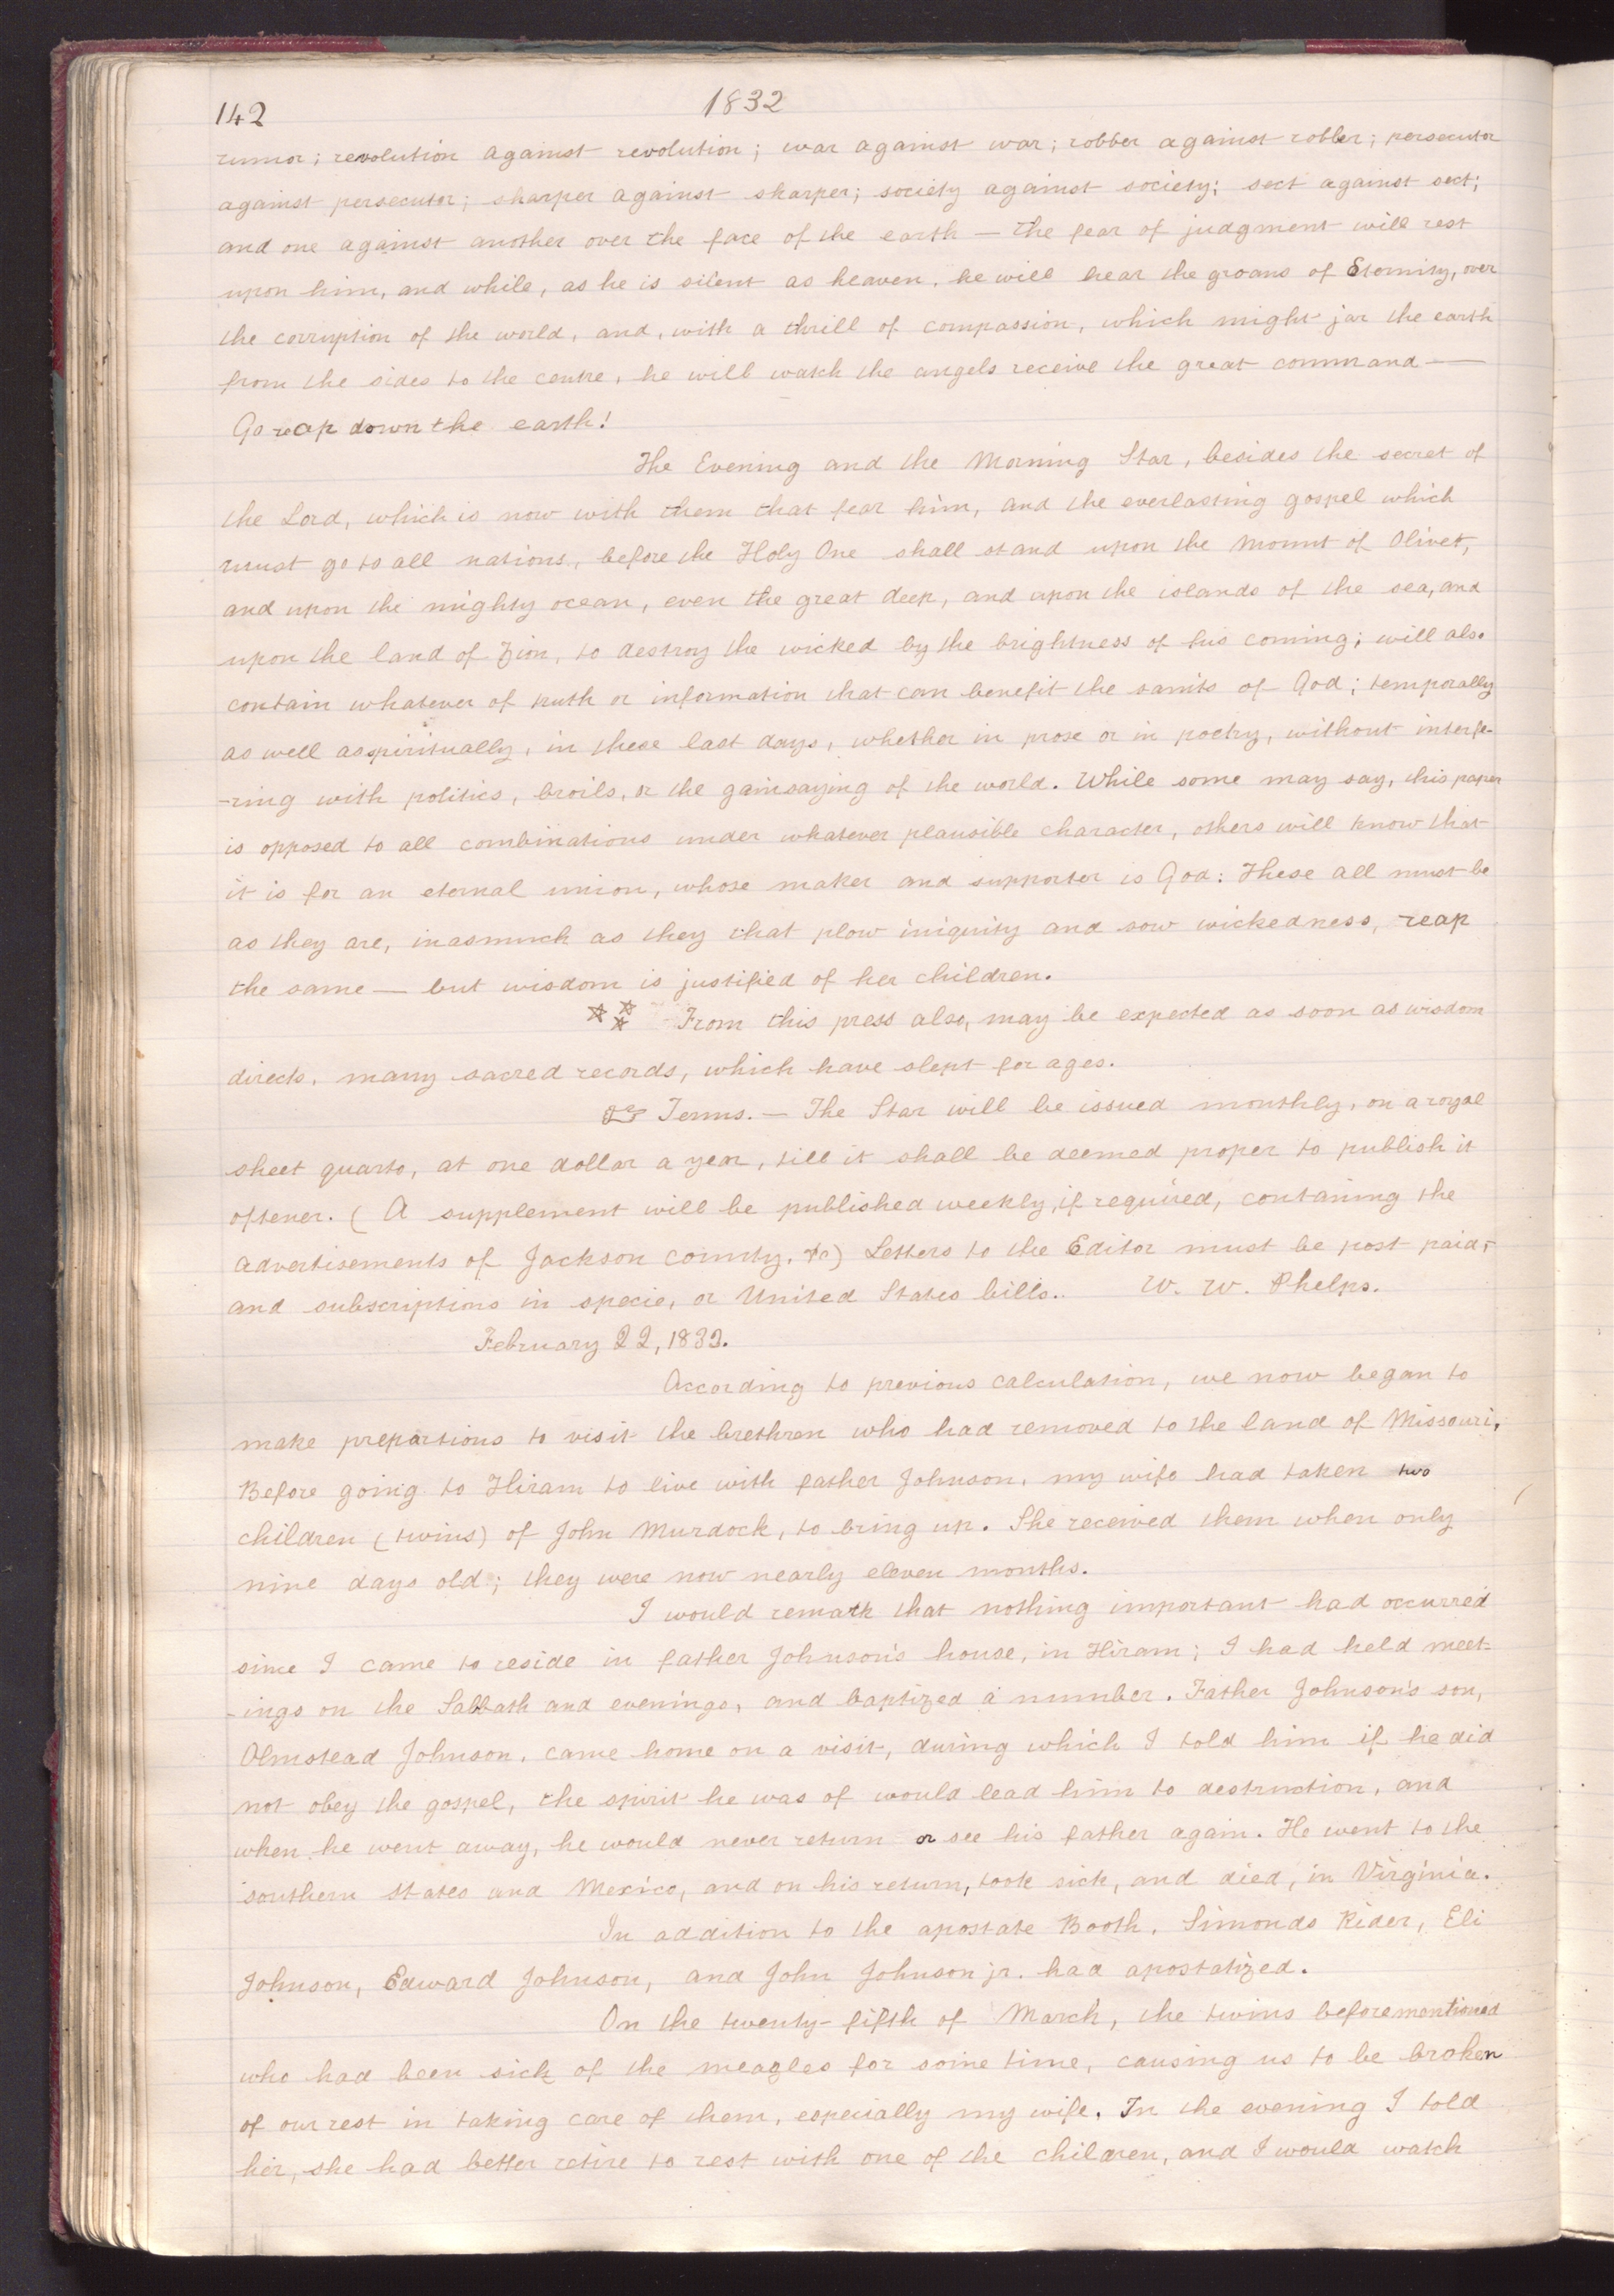 142
1832
rumor; revolution against revolution; war against war; robber against robber; persecutor
against persecutor; sharper against sharper; society against society; sect against sect;
and one against another over the face of the earth — the fear of judgment will rest
upon him, and while, as he is silent as heaven, he will hear the groans of Eternity, over
the corruption of the world, and, with a thrill of compassion, which might jar the earth
from the sides to the centre, he will watch the angels receive the great command —
Go reap down the earth!
The Evening and the Morning Star, besides the secret of
the Lord, which is now with them that fear him, and the everlasting gospel which
must go to all nations, before the Holy One shall stand upon the Mount of Olivet,
and upon the mighty ocean, even the great deep, and upon the islands of the sea, and
upon the land of Zion, to destroy the wicked by the brightness of his coming; will also
contain whatever of truth or information that can benefit the saints of God; temporally
as well as spiritually, in these last days, whether in prose or in poetry, without interfe-
-ring with politics, broils, or the gainsaying of the world. While some may say, this paper
is opposed to all combinations under whatever plausible character, others will know that
it is for an eternal union, whose maker and supporter is God: These all must be
as they are, inasmuch as they that plow iniquity and sow wickedness, reap
the same — but wisdom is justified of her children.
☆☆☆ From this press also, may be expected as soon as wisdom
directs, many sacred records, which have slept for ages.
☞ Terms. — The Star will be issued monthly, on a royal
sheet quarto, at one dollar a year, till it shall be deemed proper to publish it
oftener. (A supplement will be published weekly, if required, containing the
advertisements of Jackson County, &c) Letters to the Editor must be post paid,
and subscriptions in specie, or United States bills. W. W. Phelps.
February 22, 1832.
According to previous calculation, we now began to
make prepartions to visit the brethren who had removed to the land of Missouri,
Before going to Hiram to live with father Johnson, my wife had taken two
children (twins) of John Murdock, to bring up. She received them when only
nine days old; they were now nearly eleven months.
I would remark that nothing important had occurred
since I came to reside in father Johnson's house, in Hiram; I had held meet-
-ings on the Sabbath and evenings, and baptized a number. Father Johnson's son,
Olmstead Johnson, came home on a visit, during which I told him if he did
not obey the gospel, the spirit he was of would lead him to destruction, and
when he went away, he would never return or see his father again. He went to the
southern states and Mexico, and on his return, took sick, and died, in Virginia.
In addition to the apostate Booth, Simonds Rider, Eli
Johnson, Edward Johnson, and John Johnson jr. had apostatized.
On the twenty-fifth of March, the twins beforementioned
who had been sick of the meagles for some time, causing us to be broken
of our rest in taking care of them, especially my wife. In the evening I told
her, she had better retire to rest with one of the children, and I would watch